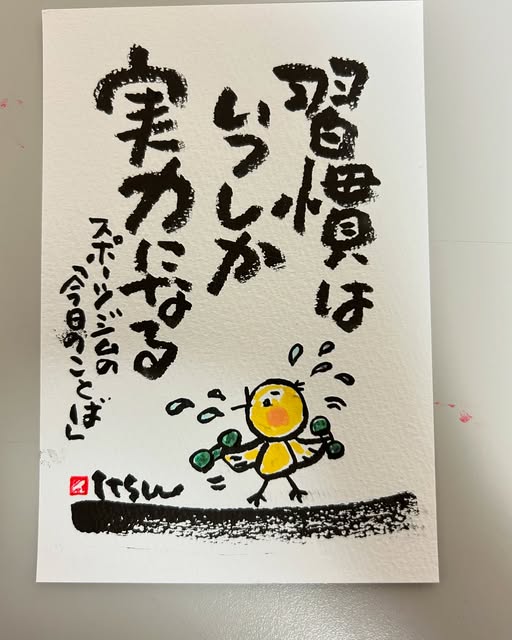 習慣は
いつしか
実力になる
スポーツジムの
「今日のことば」